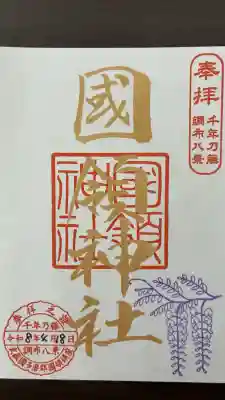 奉拝
千年乃藤
調布八景
國領神社
國領神社
参拝之証
千年乃藤
令和8年4月18日
調布八景